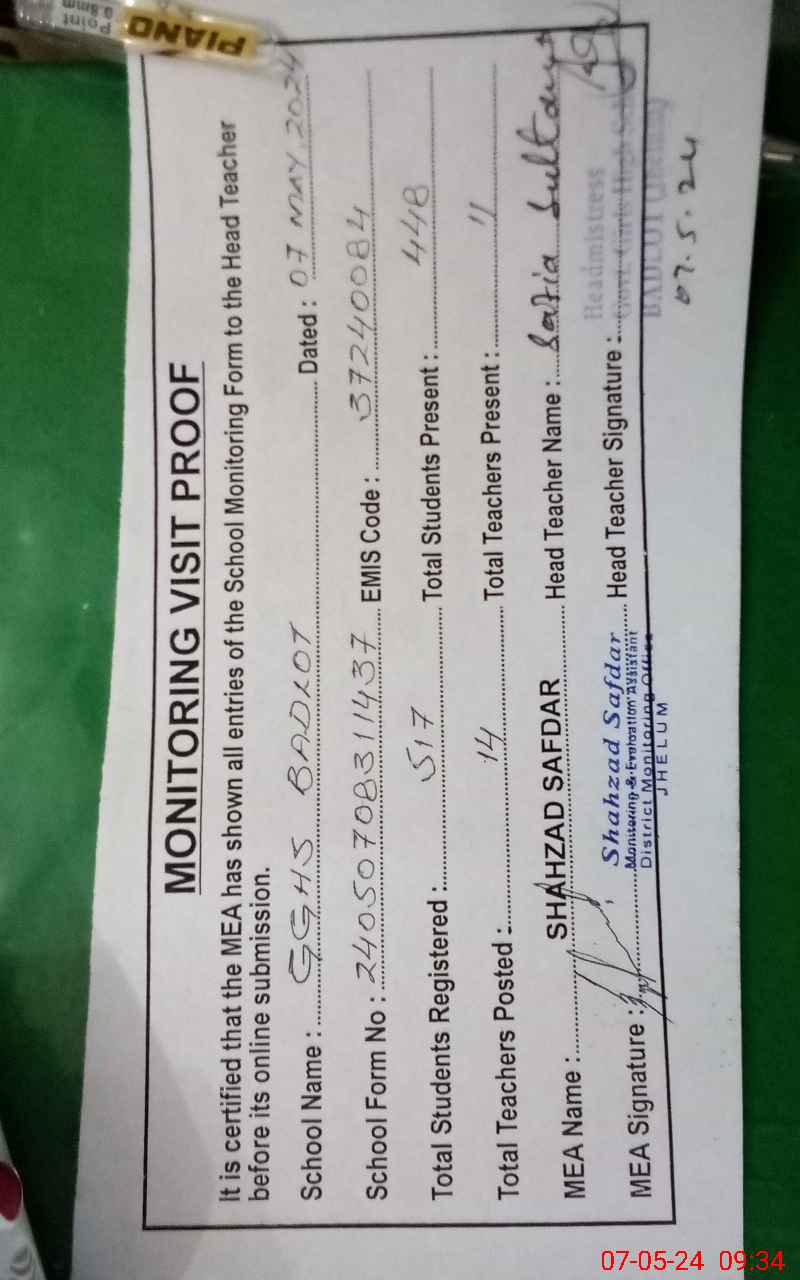 MONITORING VISIT PROOF
It is certified that the MEA has shown all entries of the School Monitoring Form to the Head Teacher
before its online submission.
School Name : GGHS BADLOT Dated : 07 MAY 2024
School Form No : 240507083111437 EMIS Code : 37240084
Total Students Registered : 517 Total Students Present : 448
Total Teachers Posted : 14 Total Teachers Present :
MEA Name : SHAHZAD SAFDAR Head Teacher Name : Safia Sultana
MEA Signature : Head Teacher Signature :
Shahzad Safdar
Monitoring & Evaluation Assistant
District Monitoring Office
JHELUM
Headmistress
Govt. Girls High
BADLOT
07.5.24
PIANO
Point
0.8mm
07-05-24 09:34